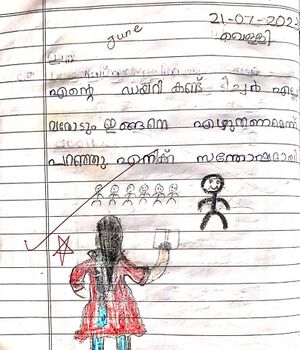 june
21-07-202
വെള്ളി
എന്റെ ഡയറി കണ്ട് ടീച്ചർ എല്ലാ
വരോടും ഇങ്ങനെ എഴുതണമെന്ന്
പറഞ്ഞു എനിക്ക് സന്തോഷമായി